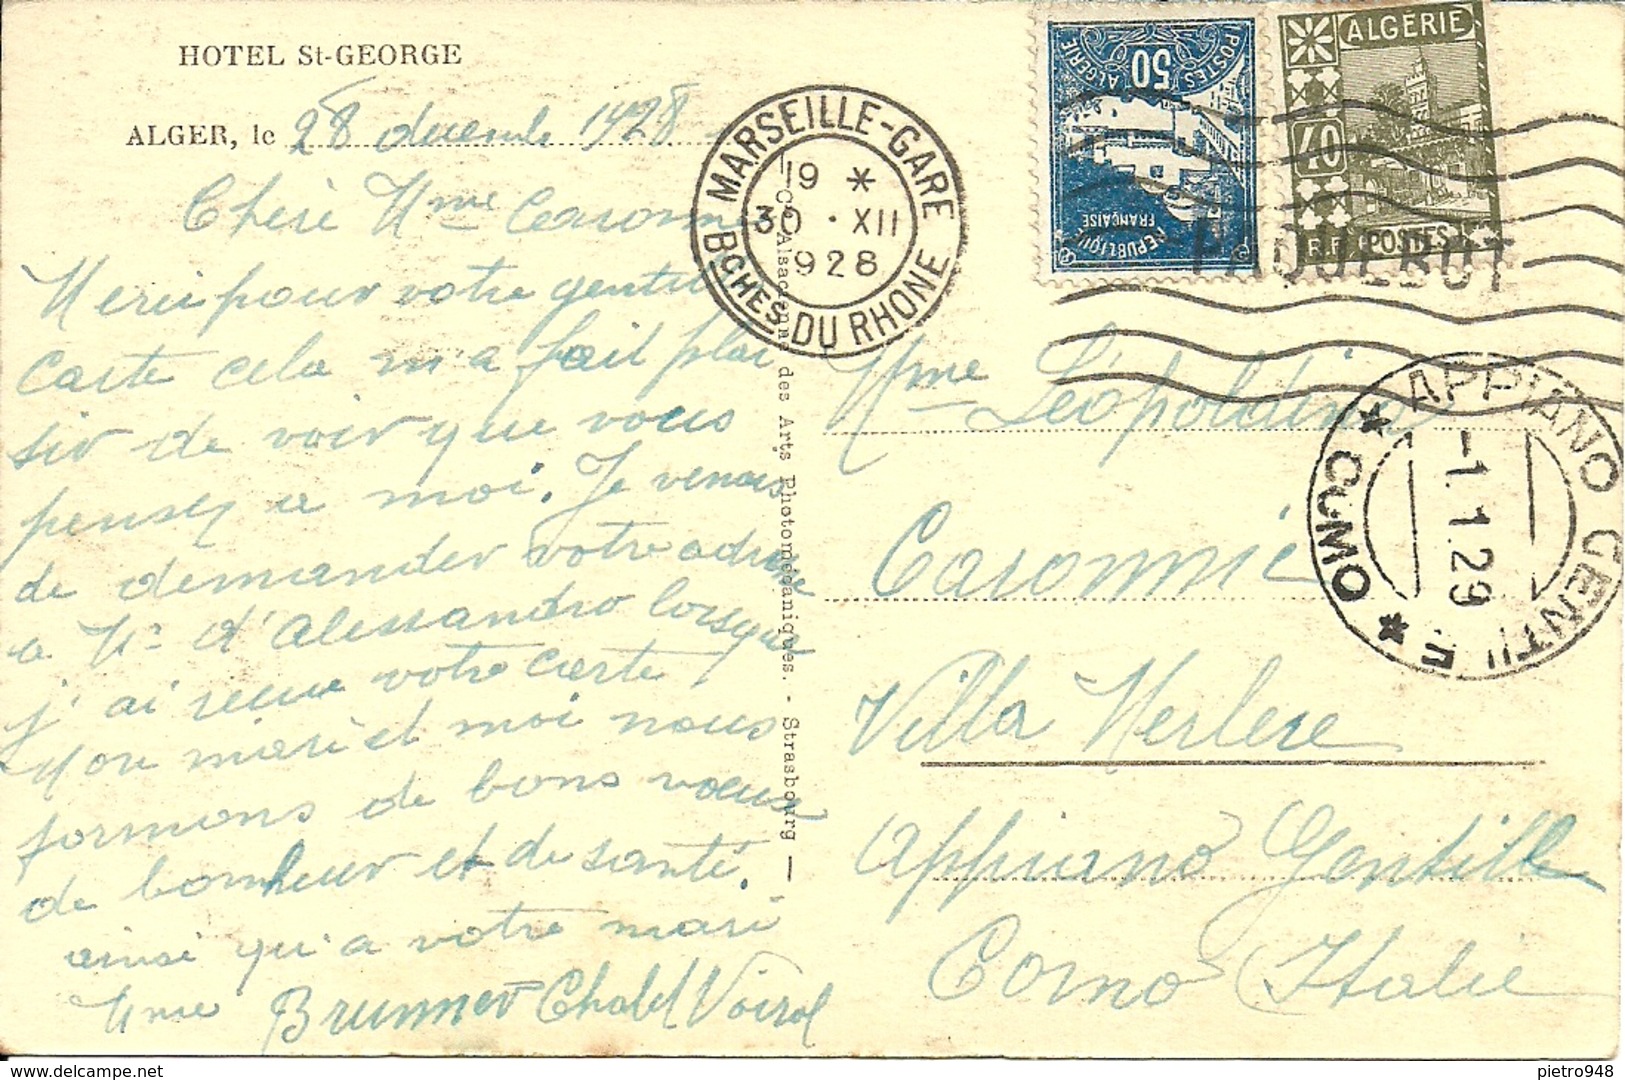 HOTEL St-GEORGE
ALGER, le 28 decembre 1928
Cheré Mme Caronni
Merci pour votre gentil
carte cela m'a fait plai
sir de voir que vous
pensez a moi. Je venais
de demander votre adresse
a Mr d'Alessandro lorsque
j'ai reçue votre carte,
Mon mari et moi nous
formons de bons voeux
de bonheur et de santé.
ainsi qu'a votre mari
Mme Brunner Chalet Voirol
Alsacienne des Arts Photomécaniques. - Strasbourg —
MARSEILLE-GARE
19 *
30 · XII
928
BCHES DU RHONE
POSTES ALGERIE
50
REPUBLIQUE FRANÇAISE
ALGÉRIE
40
RF POSTES
PAQUEBOT
APPIANO GENTILE
-1.1.29
* COMO *
Mme Léopoldina
Caronni
Villa
Appiano Gentille
Como Italie
pietro948